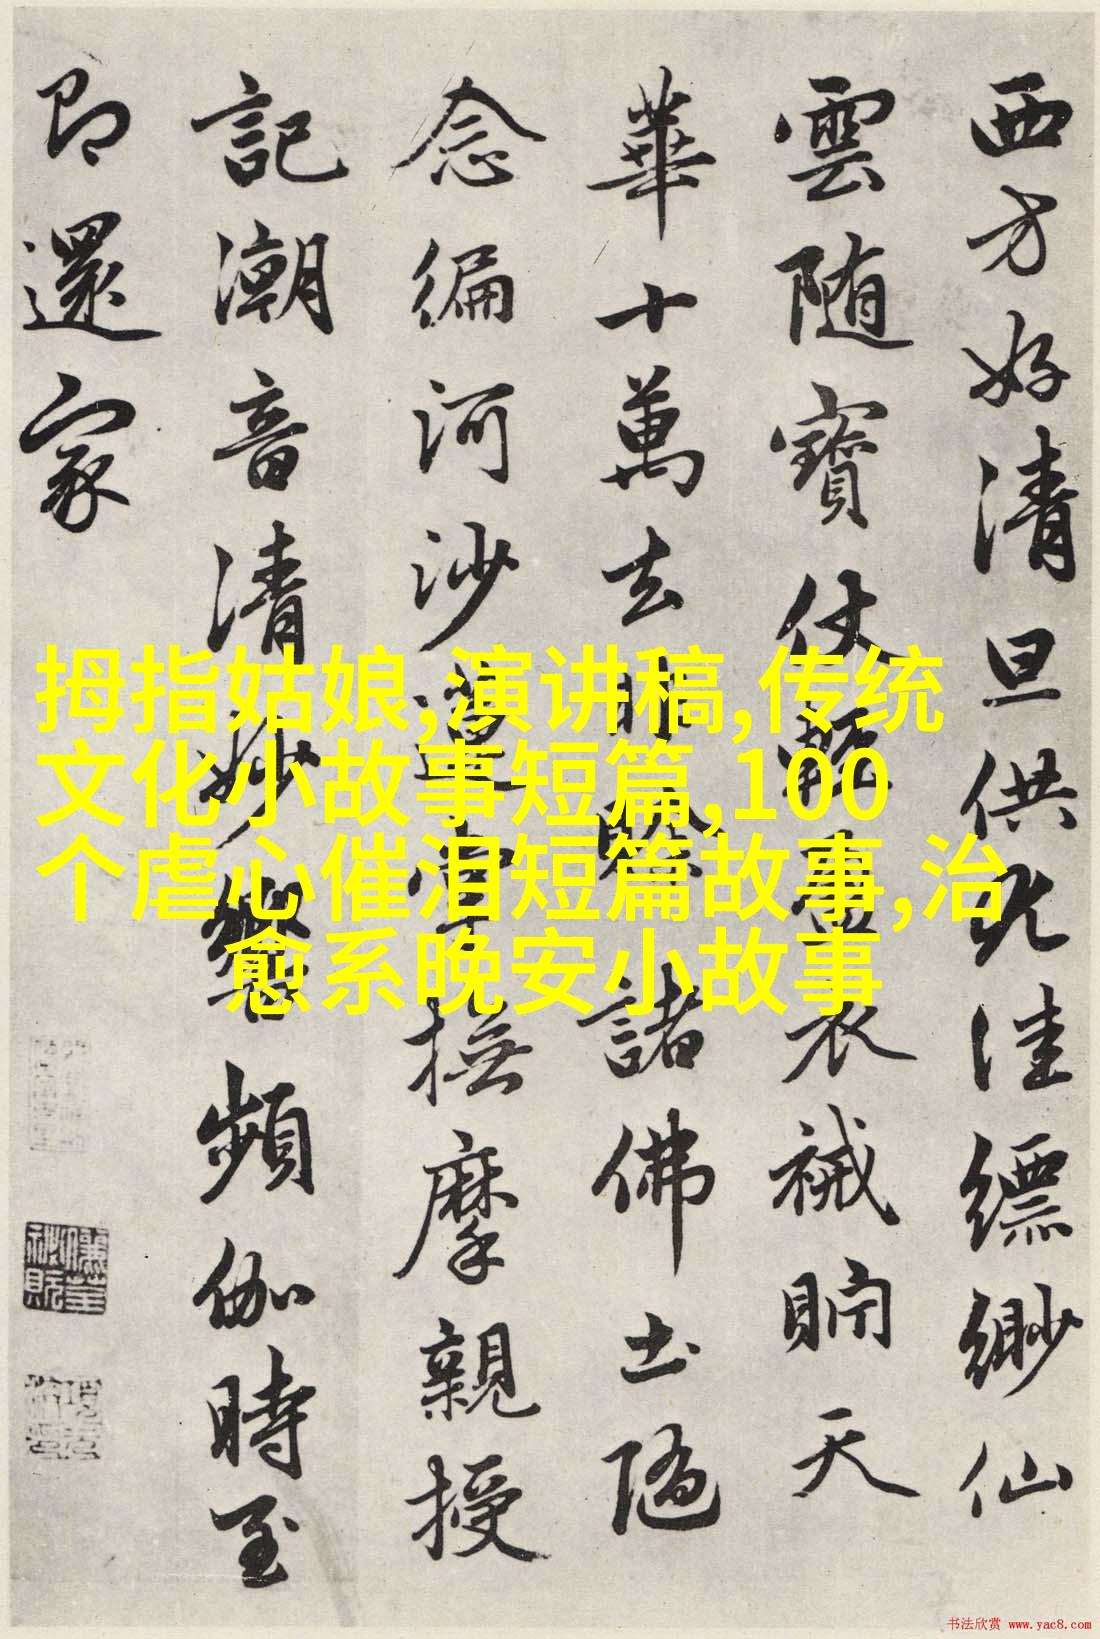 西方好清旦供尤佳縹緲仙
雲随寶仗輕盈衣裓貯天
華十萬去時賒諸佛土随
念徧河沙蓮掌撫摩親授
記潮音清妙響頻伽時至
即還家
拇指姑娘,演讲稿,传统
文化小故事短篇,100
个虐心催泪短篇故事,治
愈系晚安小故事
书法欣赏 www.yac8.com